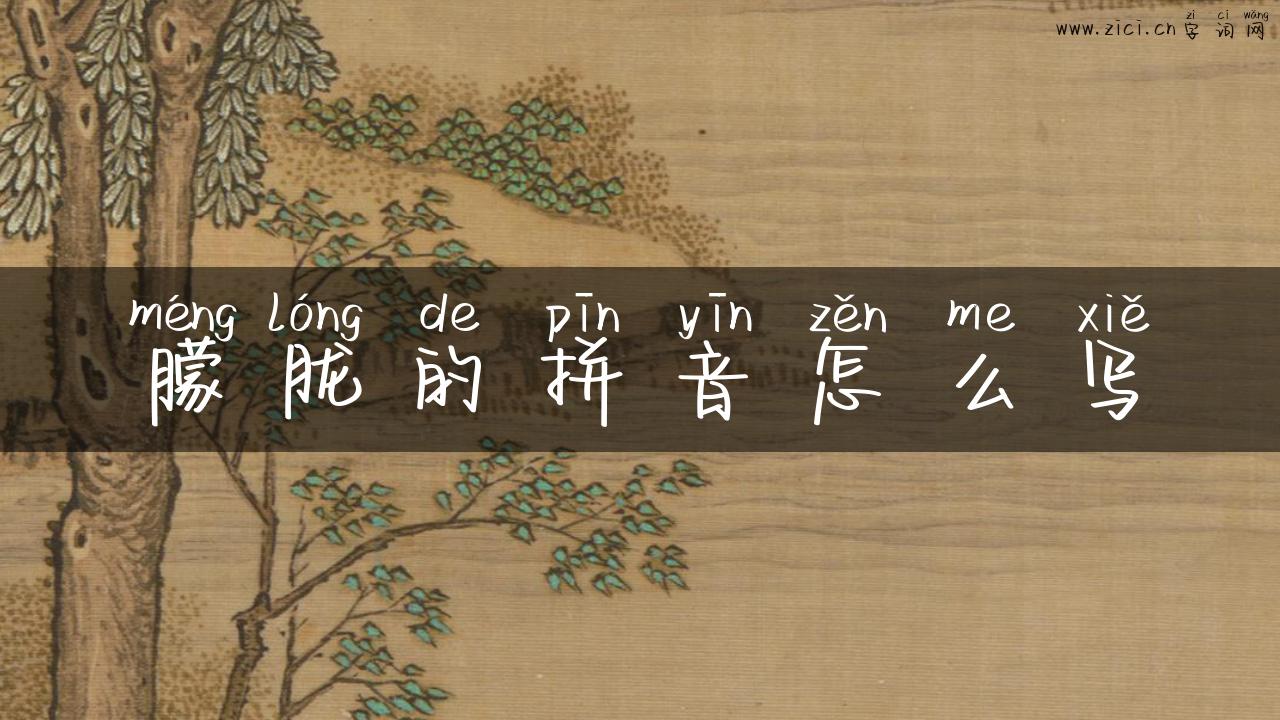 zì cí wǎng
www.zici.cn 字词网
méng lóng de pīn yīn zěn me xiě
朦胧的拼音怎么写